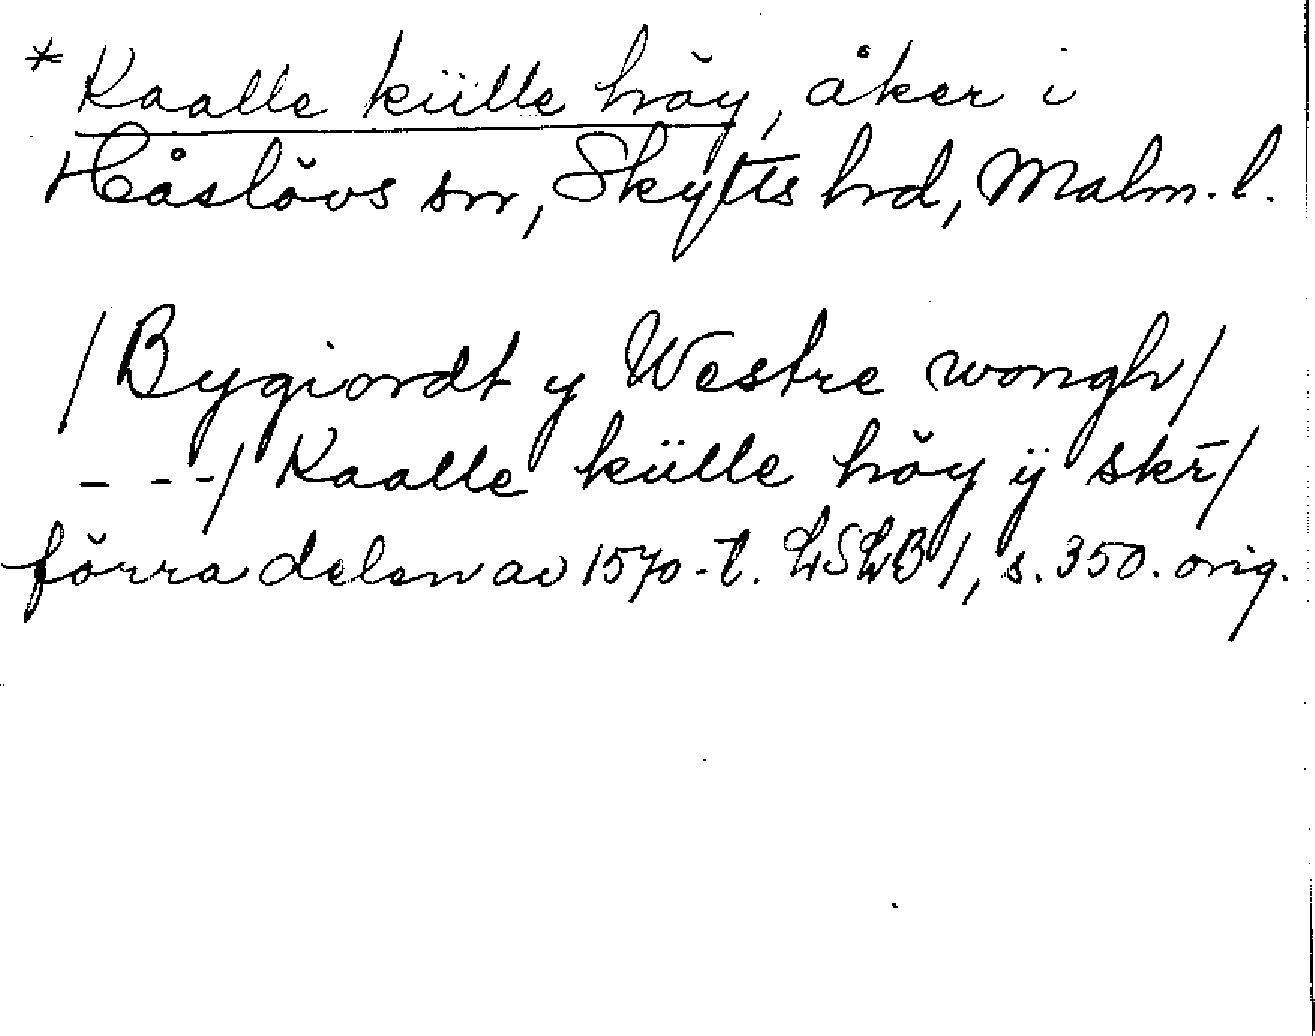 * Kaalle külle höy, åker i
Håslövs sn, Skytts hd, Malm. l.
/Bygiordt y Westre wongh/
- - -/ Kaalle külle höy ÿ skr̄/
förra delen av 1570-t. LSLB 1, s. 350. orig.